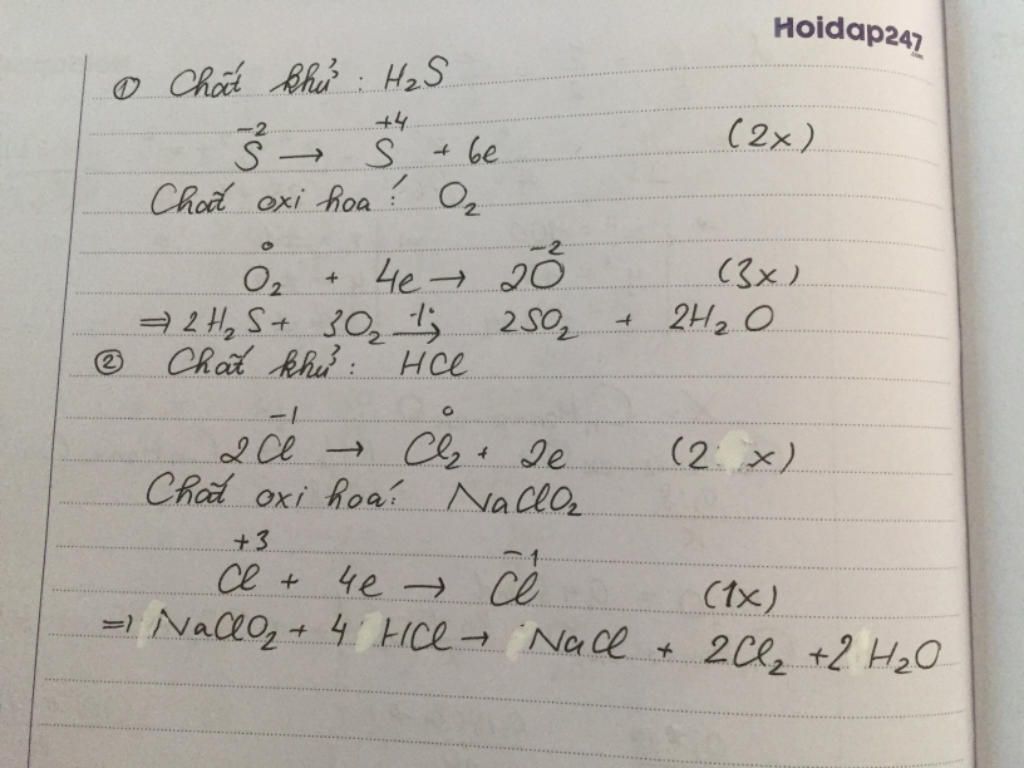 Hoidap247.com
① Chất khử : H₂S
S⁻² → S⁺⁴ + 6e (2x)
Chất oxi hoá : O₂
O₂⁰ + 4e → 2O⁻² (3x)
⇒ 2H₂S + 3O₂ →(t°) 2SO₂ + 2H₂O
② Chất khử : HCl
2Cl⁻¹ → Cl₂⁰ + 2e (2x)
Chất oxi hoá : NaClO₂
Cl⁺³ + 4e → Cl⁻¹ (1x)
⇒ NaClO₂ + 4HCl → NaCl + 2Cl₂ + 2H₂O